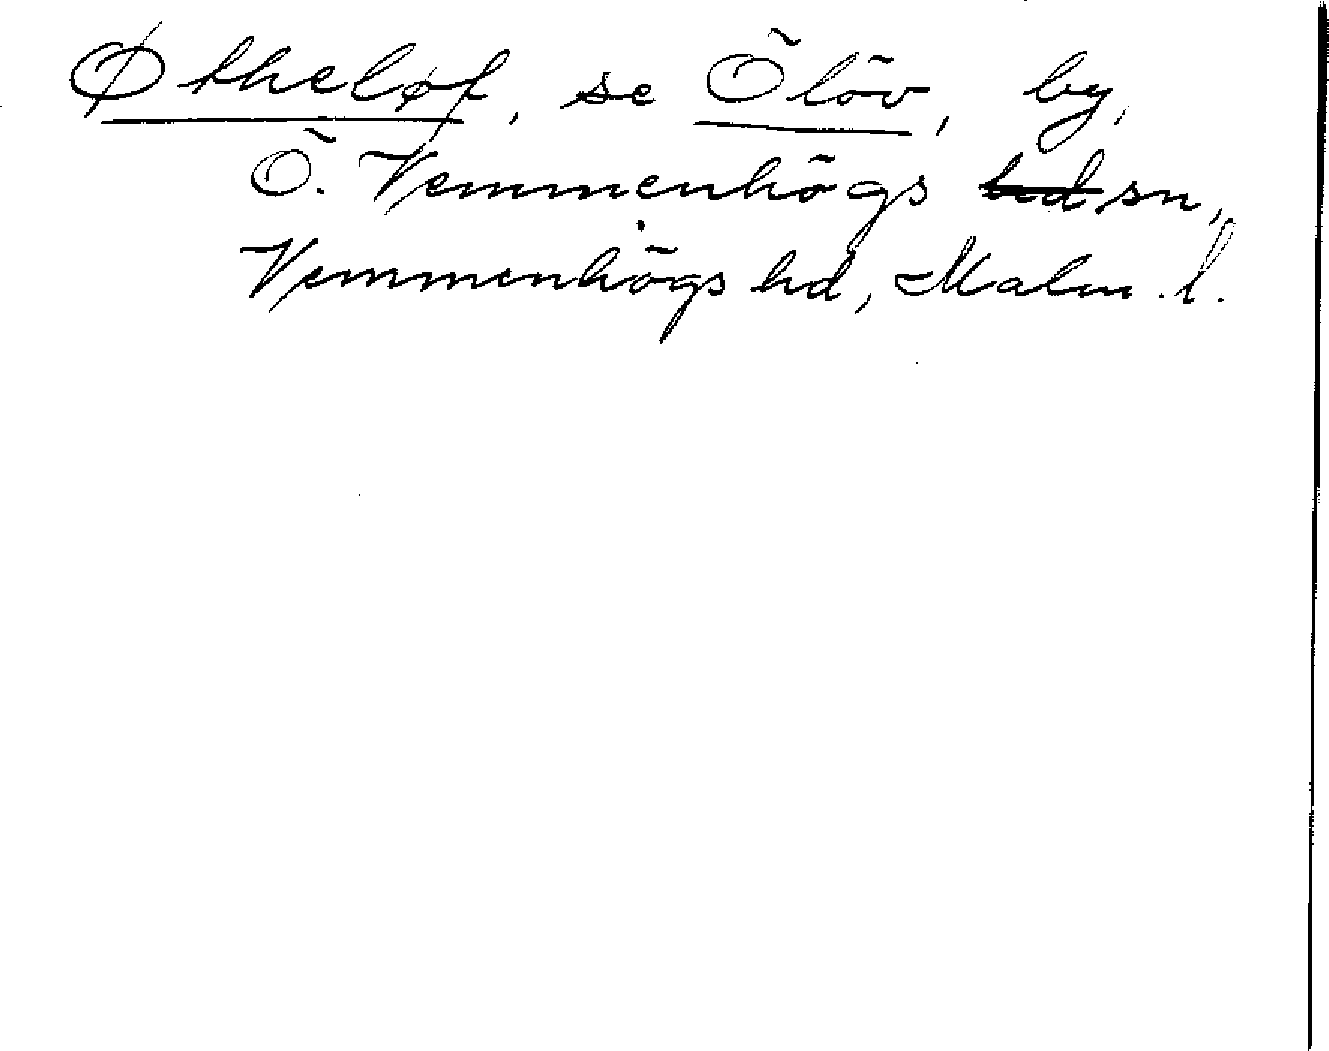 Øtheløf, se Ölöv, by,
Ö. Vemmenhögs hd sn,
Vemmenhögs hd, Malm. l.